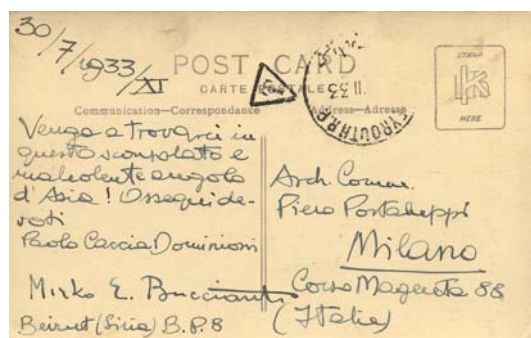 30/7/1933/XI
POST CARD
CARTE POSTALE
Communication—Correspondance
Address—Adresse
STAMP
HERE
BEYROUTH R.P.
II 33
Venga a trovarci in
questo sconsolato e
malvolente angolo
d'Asia! Ossequi de-
voti
Paolo Caccia Dominioni
Mirko E. Buccianti
Beirut (Siria) B.P. 8
Arch. Comm.
Piero Portaluppi
Milano
Corso Magenta 88
(Italia)